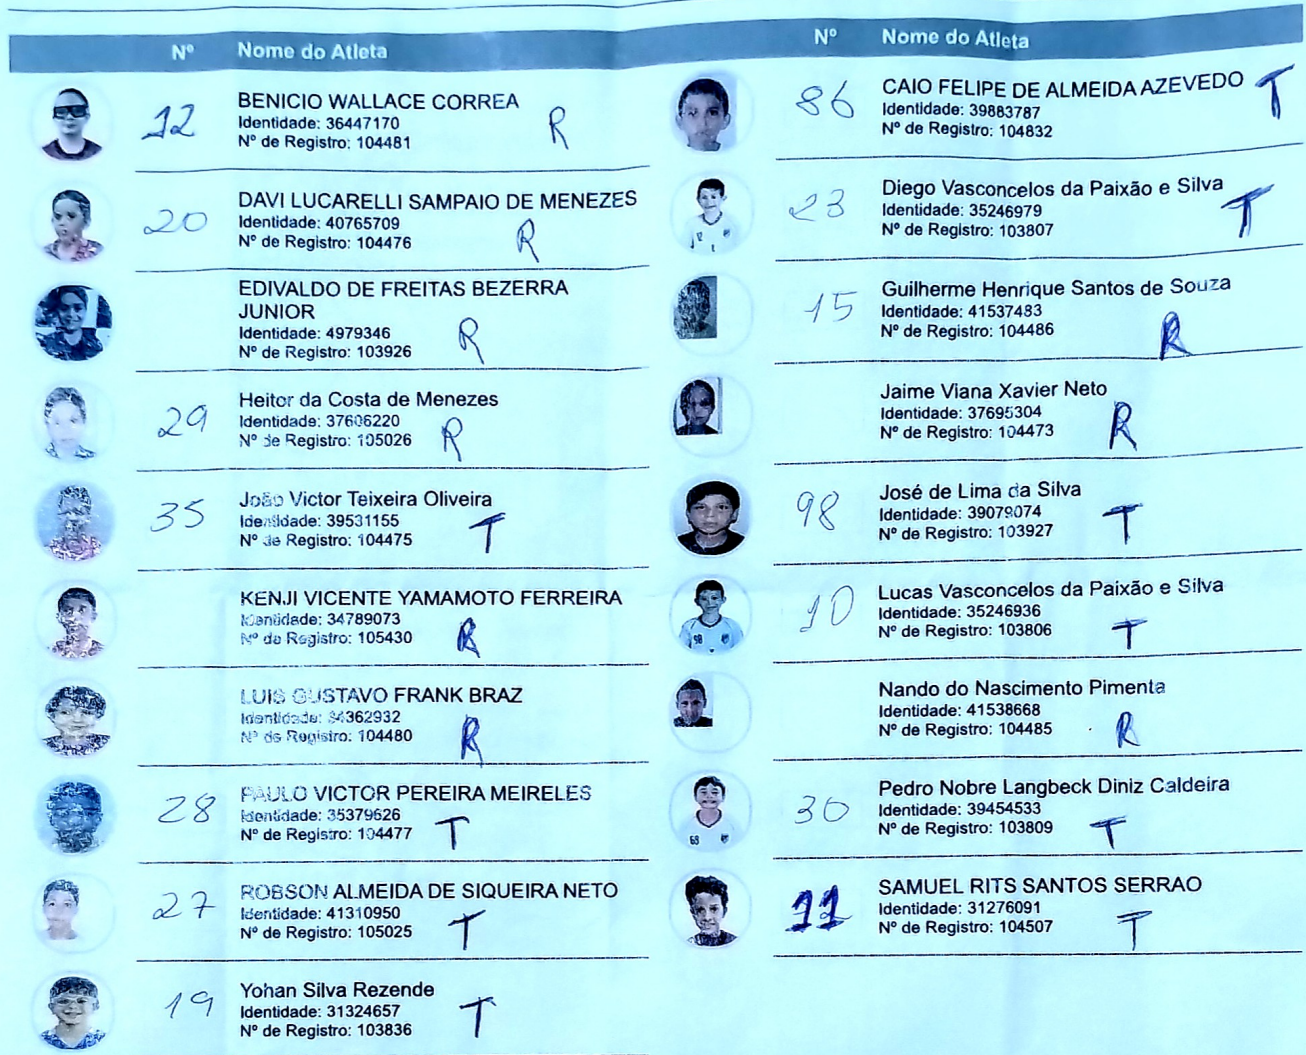 Nº Nome do Atleta
12 BENICIO WALLACE CORREA
Identidade: 36447170
Nº de Registro: 104481 R
20 DAVI LUCARELLI SAMPAIO DE MENEZES
Identidade: 40765709
Nº de Registro: 104476 R
EDIVALDO DE FREITAS BEZERRA
JUNIOR
Identidade: 4979346
Nº de Registro: 103926 R
29 Heitor da Costa de Menezes
Identidade: 37606220
Nº de Registro: 105026 R
35 João Victor Teixeira Oliveira
Identidade: 39531155
Nº de Registro: 104475 T
KENJI VICENTE YAMAMOTO FERREIRA
Identidade: 34789073
Nº de Registro: 105430 R
LUIS GUSTAVO FRANK BRAZ
Identidade: 34362932
Nº de Registro: 104480 R
28 PAULO VICTOR PEREIRA MEIRELES
Identidade: 35379626
Nº de Registro: 104477 T
27 ROBSON ALMEIDA DE SIQUEIRA NETO
Identidade: 41310950
Nº de Registro: 105025 T
19 Yohan Silva Rezende
Identidade: 31324657
Nº de Registro: 103836 T
Nº Nome do Atleta
86 CAIO FELIPE DE ALMEIDA AZEVEDO T
Identidade: 39883787
Nº de Registro: 104832
23 Diego Vasconcelos da Paixão e Silva
Identidade: 35246979 T
Nº de Registro: 103807
15 Guilherme Henrique Santos de Souza
Identidade: 41537483
Nº de Registro: 104486 R
Jaime Viana Xavier Neto
Identidade: 37695304
Nº de Registro: 104473 R
98 José de Lima da Silva
Identidade: 39079074 T
Nº de Registro: 103927
10 Lucas Vasconcelos da Paixão e Silva
Identidade: 35246936
Nº de Registro: 103806 T
Nando do Nascimento Pimenta
Identidade: 41538668
Nº de Registro: 104485 R
30 Pedro Nobre Langbeck Diniz Caldeira
Identidade: 39454533
Nº de Registro: 103809 T
11 SAMUEL RITS SANTOS SERRAO
Identidade: 31276091
Nº de Registro: 104507 T